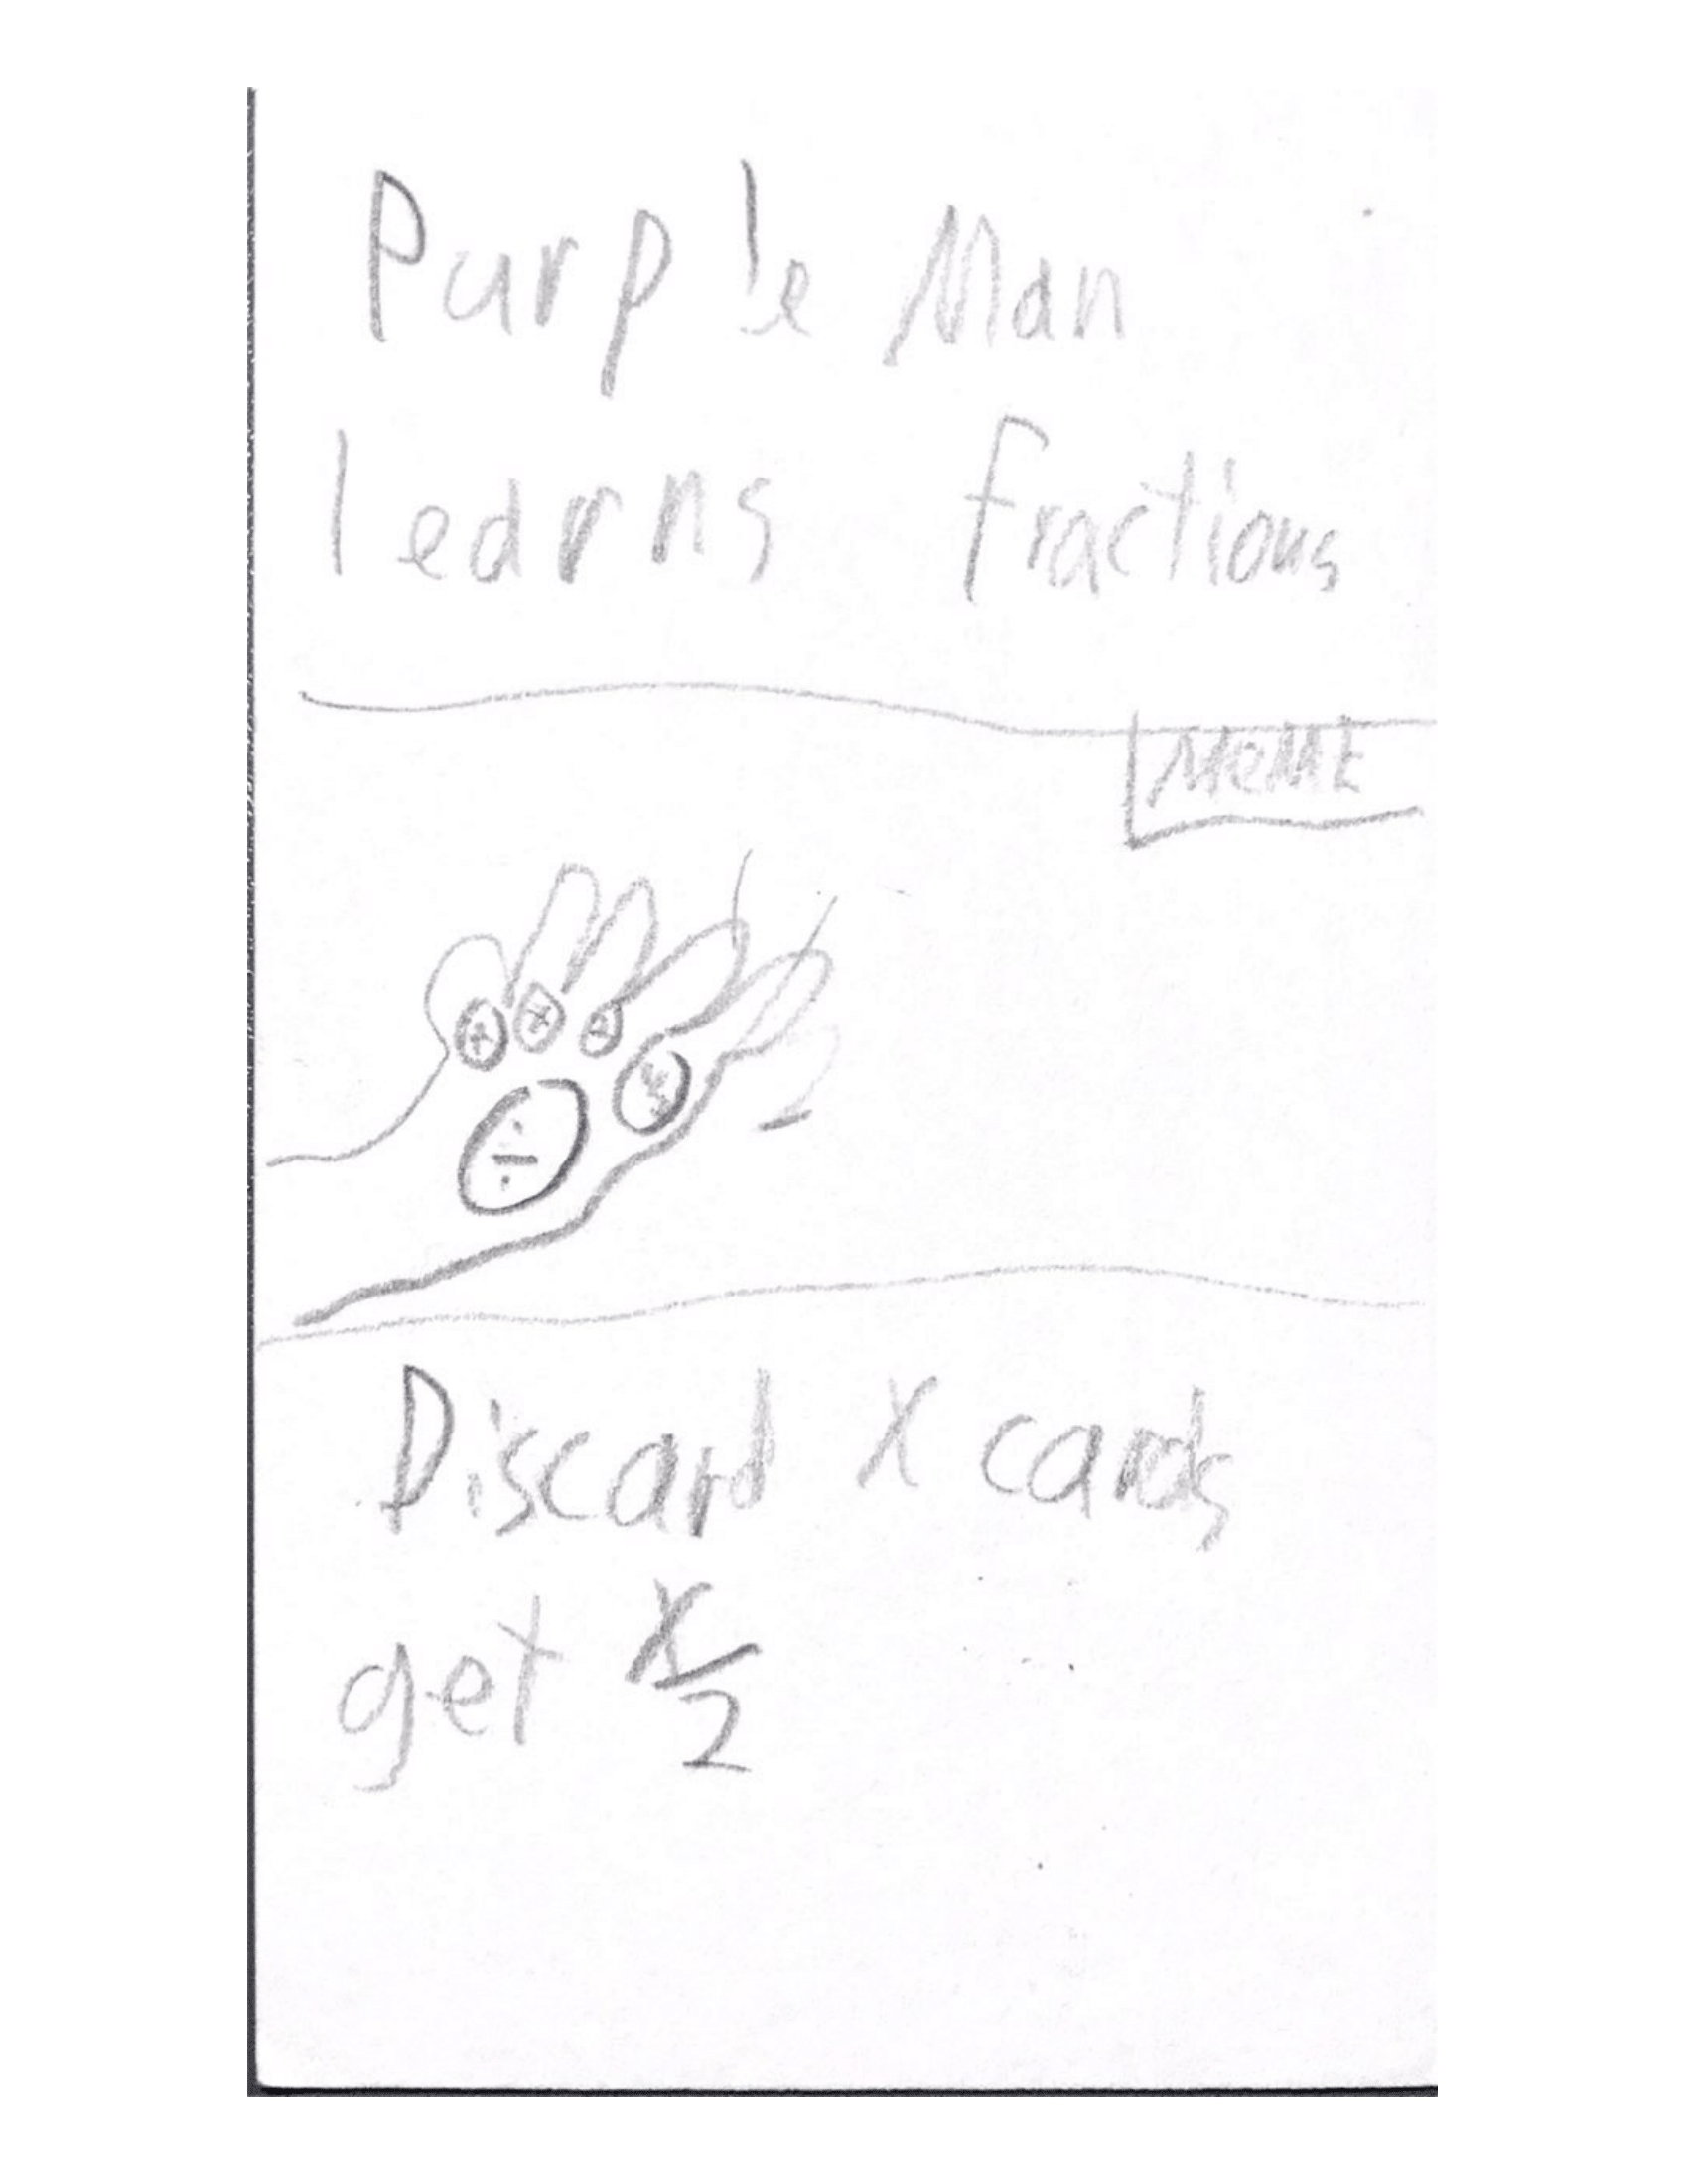 Purple Man
learns fractions
MEME
+ x -
÷
Discard X cards
get X/2